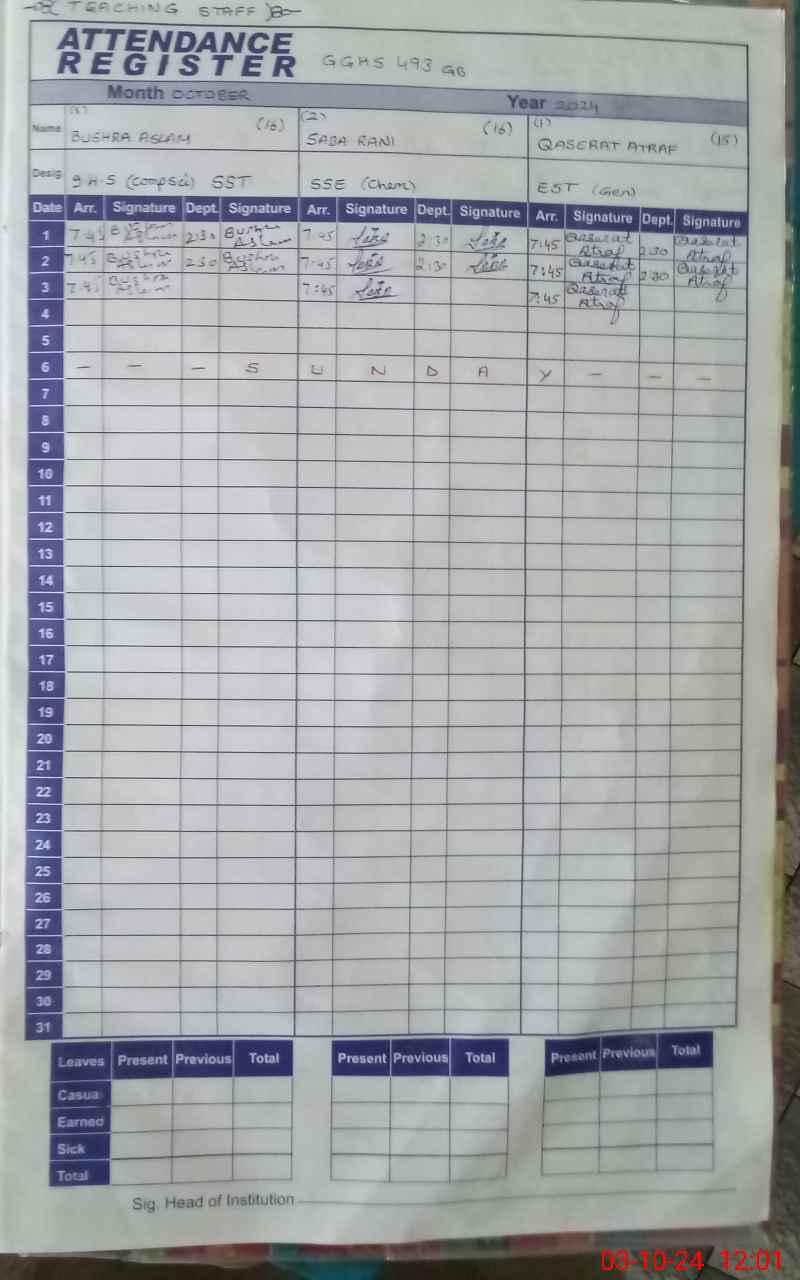 (TEACHING STAFF)
ATTENDANCE
REGISTER GGHS 493 GB
Month OCTOBER Year 2024
Name (1) BUSHRA ASLAM (16) (2) SABA RANI (16) (1) QASERAT ATRAF (15)
Desig. S.H.S (Comp Sci) SST SSE (Chem) EST (Gen)
Date Arr. Signature Dept. Signature Arr. Signature Dept. Signature Arr. Signature Dept. Signature
1 7:45 Bushra Aslam 2:30 Bushra Aslam 7:45 2:30 7:45 Qaserat Atraf 2:30 Qaserat Atraf
2 7:45 Bushra Aslam 2:30 Bushra Aslam 7:45 2:30 7:45 Qaserat Atraf 2:30 Qaserat Atraf
3 7:45 Bushra Aslam 7:45 7:45 Qaserat Atraf
4
5
6 – – – S U N D A Y – – –
7
8
9
10
11
12
13
14
15
16
17
18
19
20
21
22
23
24
25
26
27
28
29
30
31
Leaves Present Previous Total Present Previous Total Present Previous Total
Casual
Earned
Sick
Total
Sig. Head of Institution
03-10-24 12:01